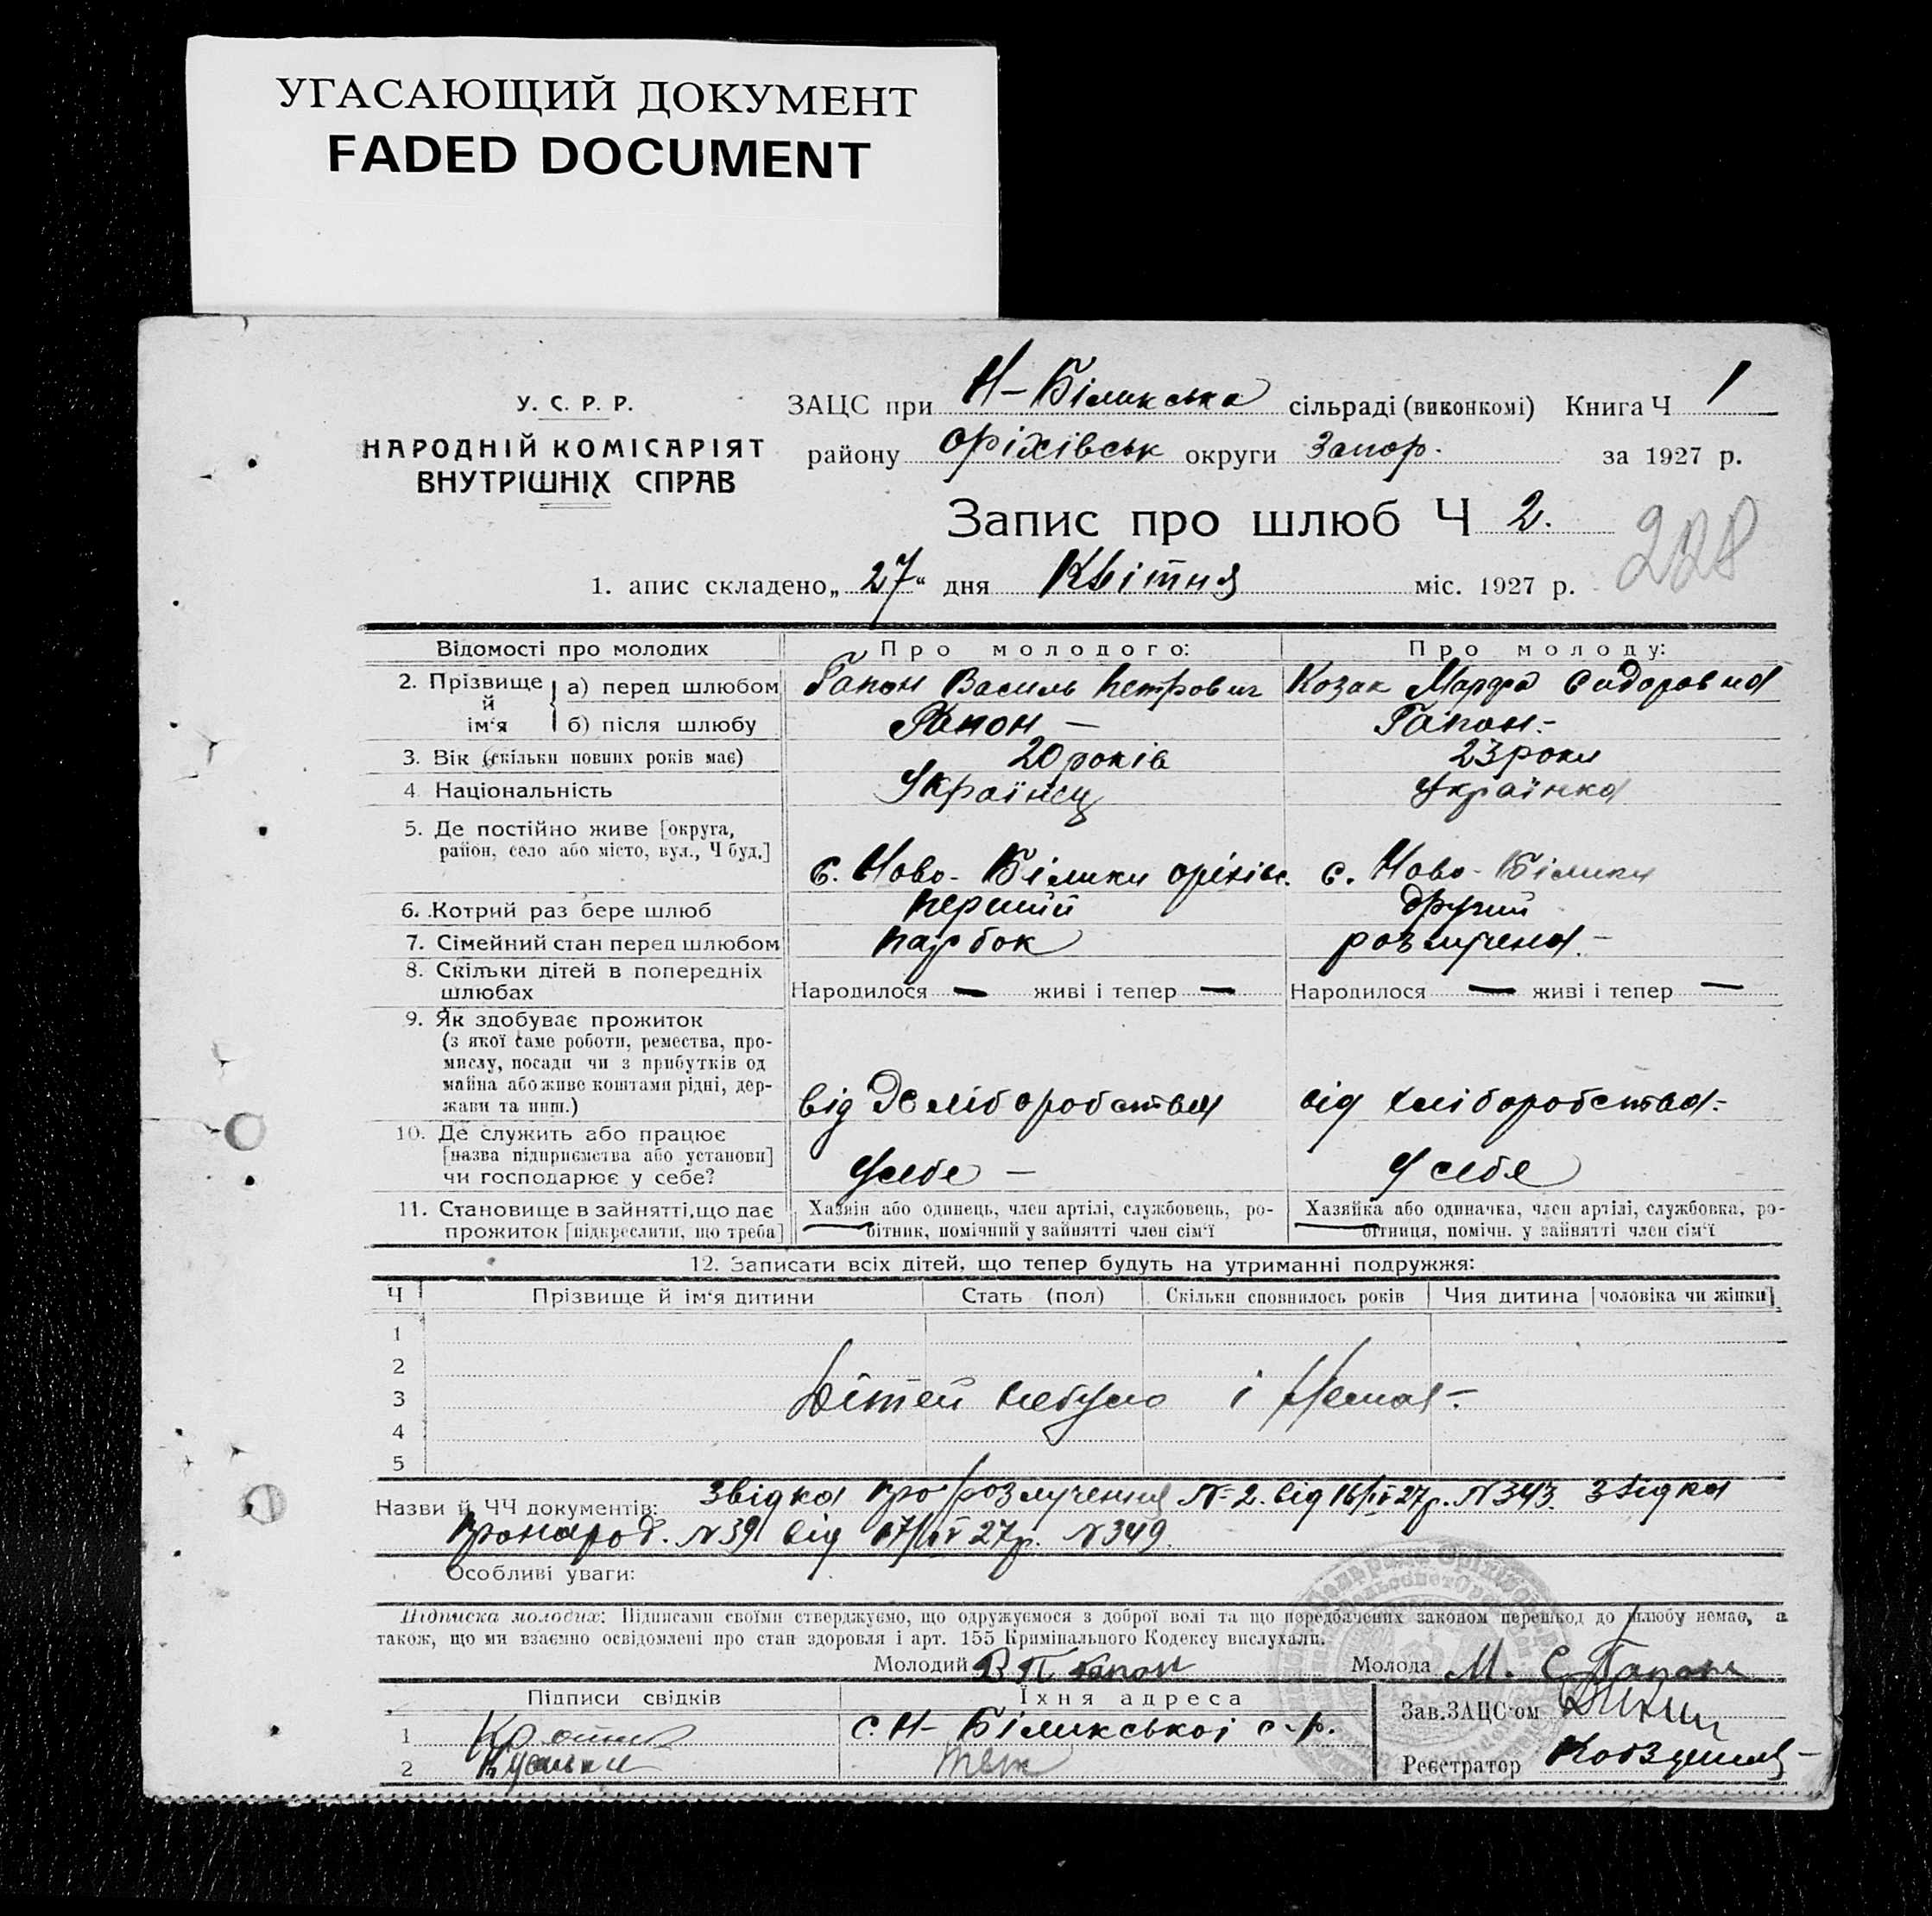 УГАСАЮЩИЙ ДОКУМЕНТ
FADED DOCUMENT
У. С. Р. Р.
НАРОДНІЙ КОМІСАРІЯТ
ВНУТРІШНІХ СПРАВ
ЗАЦС при Н-Біликська сільраді (виконкомі) Книга Ч 1
району Оріхівськ округи Запор. за 1927 р.
Запис про шлюб Ч 2.
228
1. апис складено „27“ дня Квітня міс. 1927 р.
Відомості про молодих Про молодого: Про молоду:
2. Прізвище й ім‘я а) перед шлюбом Гапон Василь Петрович Козак Марфа Сидоровна
б) після шлюбу Гапон — Гапон.-
3. Вік (скільки повних років має) 20 років 23 роки
4 Національність Українец Українка
5. Де постійно живе [округа,
район, село або місто, вул., Ч буд.] с. Ново-Білики оріхівс. с. Ново-Білики
6. Котрий раз бере шлюб перший другий
7. Сімейний стан перед шлюбом парбок розлучена.-
8. Скільки дітей в попередніх
шлюбах Народилося — живі і тепер — Народилося — живі і тепер —
9. Як здобуває прожиток
(з якої саме роботи, ремества, про-
мислу, посади чи з прибутків од
майна або живе коштами рідні, дер-
жави та инш.) від Хліборобства від хліборобства.-
10. Де служить або працює
[назва підприємства або установи]
чи господарює у себе? Усебе — У себя
11. Становище в зайнятті, що дає
прожиток [підкреслити, що треба]
Хазяїн або одинець, член артілі, службовець, ро-
бітник, помічний у зайнятті член сім‘ї
Хазяйка або одиначка, член артілі, службовка, ро-
бітниця, помічн. у зайнятті член сім‘ї
12. Записати всіх дітей, що тепер будуть на утриманні подружжя:
Ч Прізвище й ім‘я дитини Стать (пол) Скільки сповнилось років Чия дитина [чоловіка чи жінки]
1
2
3 Дітей небуло і Нема.-
4
5
Назви й ЧЧ документів: Звідка про розлучення № 2. від 16/IV 27р. N 343. Звідка
про народ. N 39 від 17/IV 27р. N 349.
Особливі уваги:
Підписка молодих: Підписами своїми стверджуємо, що одружуємося з доброї волі та що передбачених законом перешкод до шлюбу немає, а
також, що ми взаємно освідомлені про стан здоровля і арт. 155 Кримінального Кодексу вислухали.
Молодий В П Гапон Молода М. С. Гапон
Підписи свідків Їхня адреса
Зав. ЗАЦС‘ом
1 с. Н-Біликської с-р.
2 теж
Реєстратор